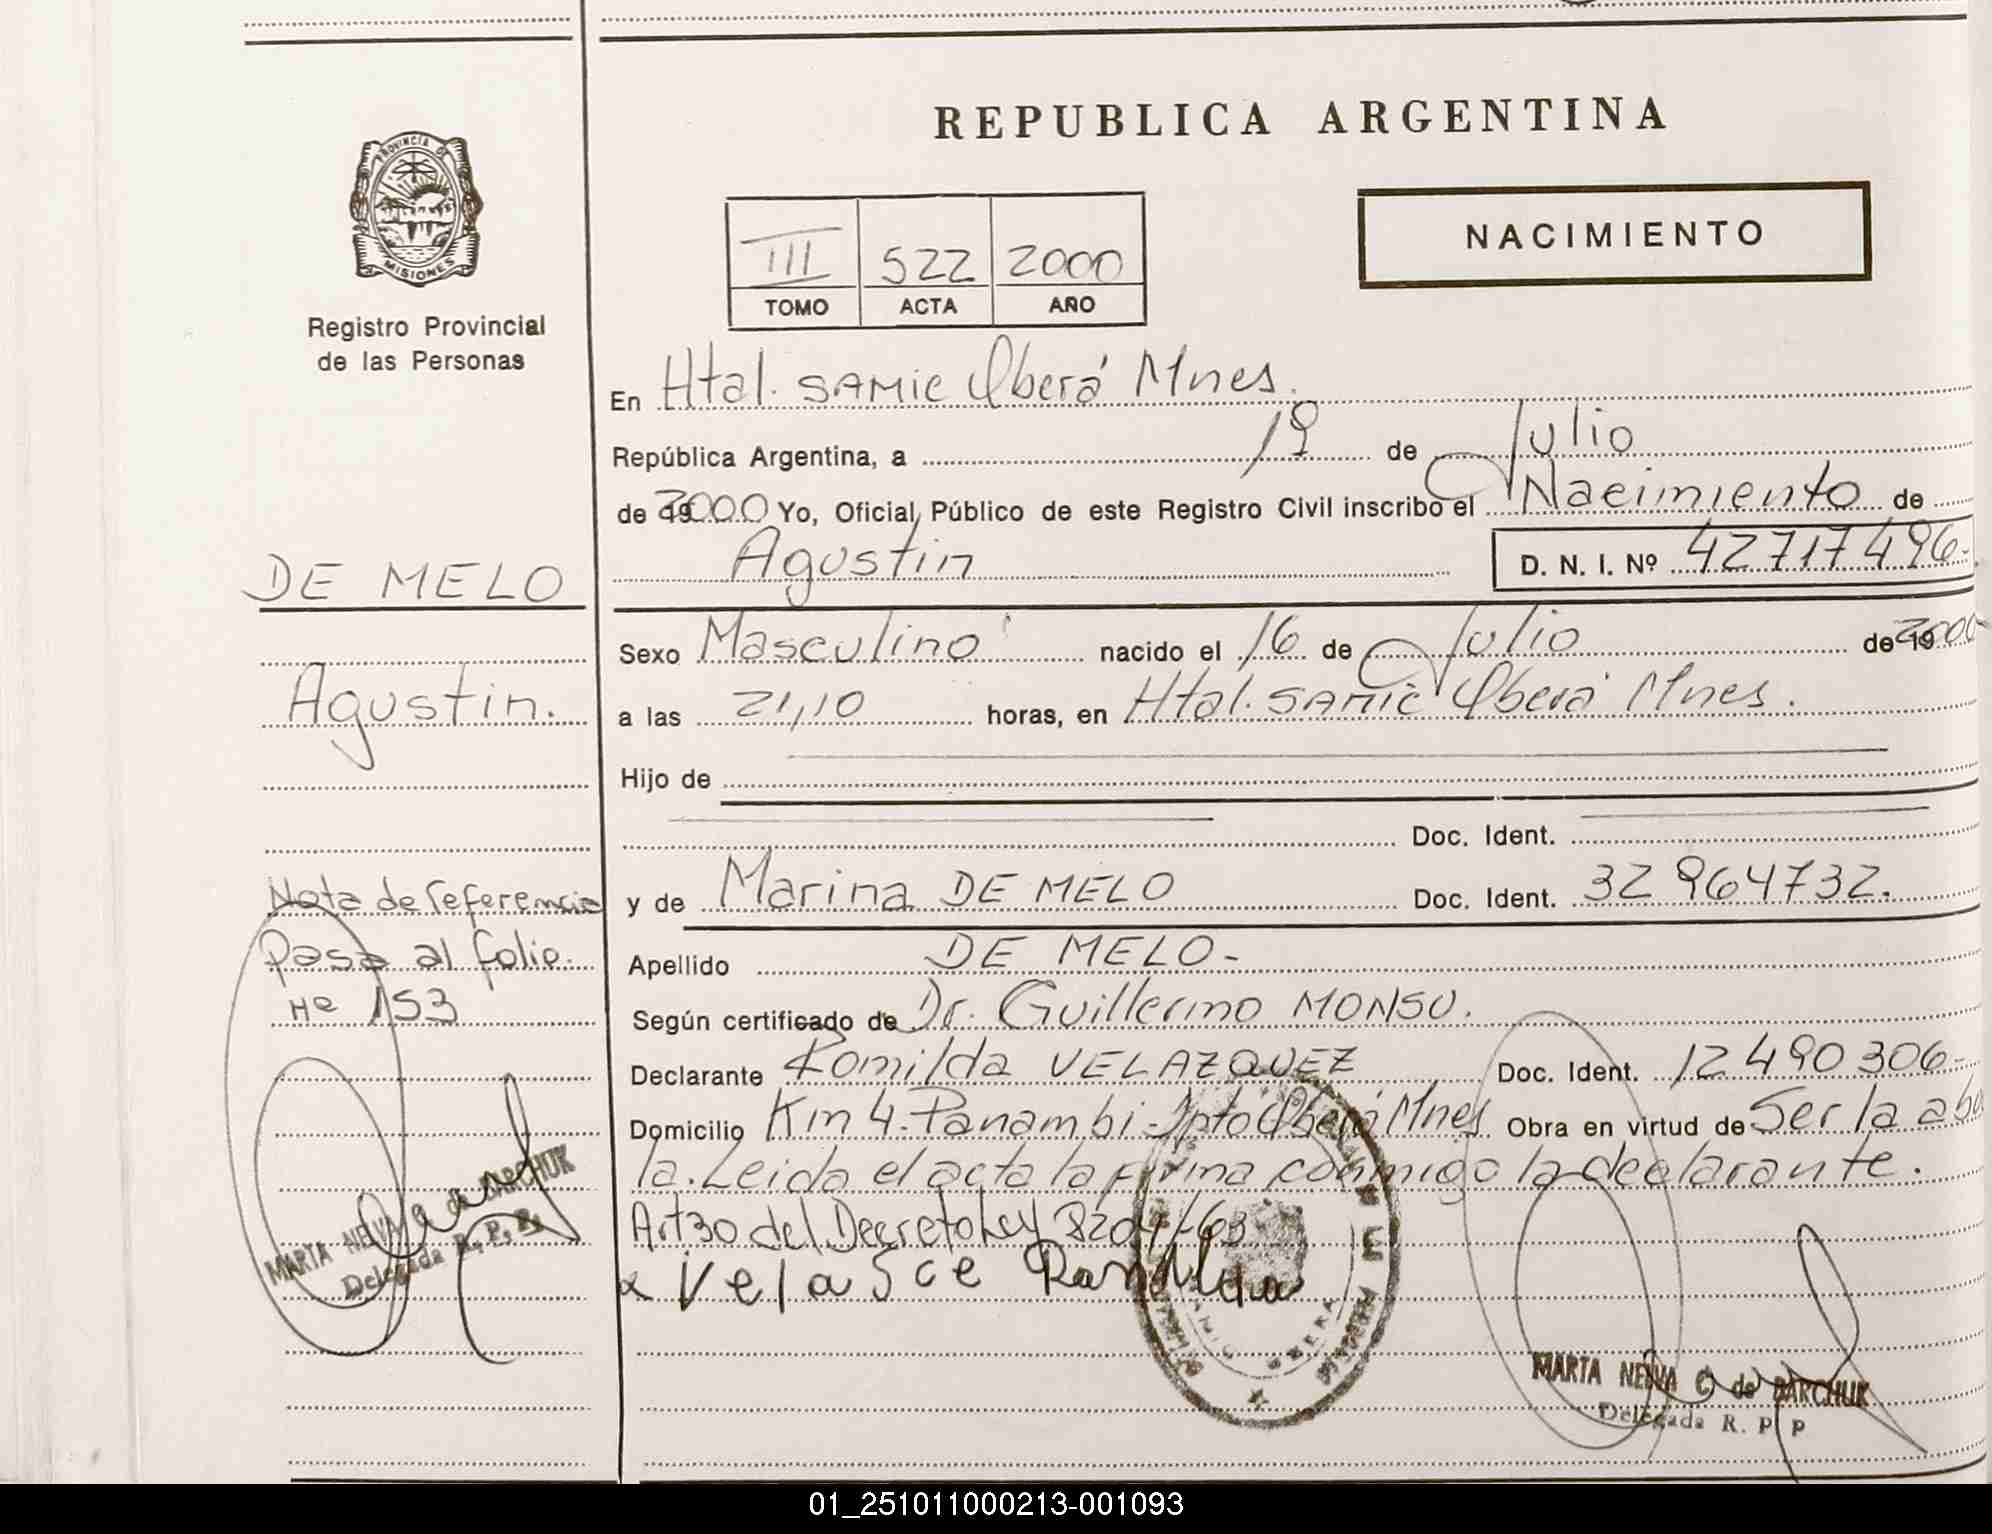 REPUBLICA ARGENTINA
PROVINCIA DE
MISIONES
Registro Provincial
de las Personas
NACIMIENTO
III 522 2000
TOMO ACTA AÑO
En Htal. SAMIC Oberá Mnes.
República Argentina, a 19 de Julio
de 2000 Yo, Oficial Público de este Registro Civil inscribo el Nacimiento de
Agustin D. N. I. Nº 42717496-
DE MELO
Agustin.
Sexo Masculino nacido el 16 de Julio de 19 2000
a las 21,10 horas, en Htal. SAMIC Oberá Mnes.
Hijo de
Doc. Ident.
y de Marina DE MELO Doc. Ident. 32 964732.
Nota de referencia
Pasa al folio.
153
Apellido DE MELO-
Según certificado de Dr. Guillermo MONSU.
Declarante Romilda VELAZQUEZ Doc. Ident. 12 490 306-
Domicilio Km 4-Panambi-Dpto Oberá Mnes Obra en virtud de Ser la abue
la. Leida el acta la firma conmigo la declarante.
Art 30 del Decreto Ley 8204/63
Velasce
MARTA NEIVA C de BARCHUK
Delegada R. P. P.
MARTA NEIVA C de BARCHUK
Delegada R. P P
01_251011000213-001093